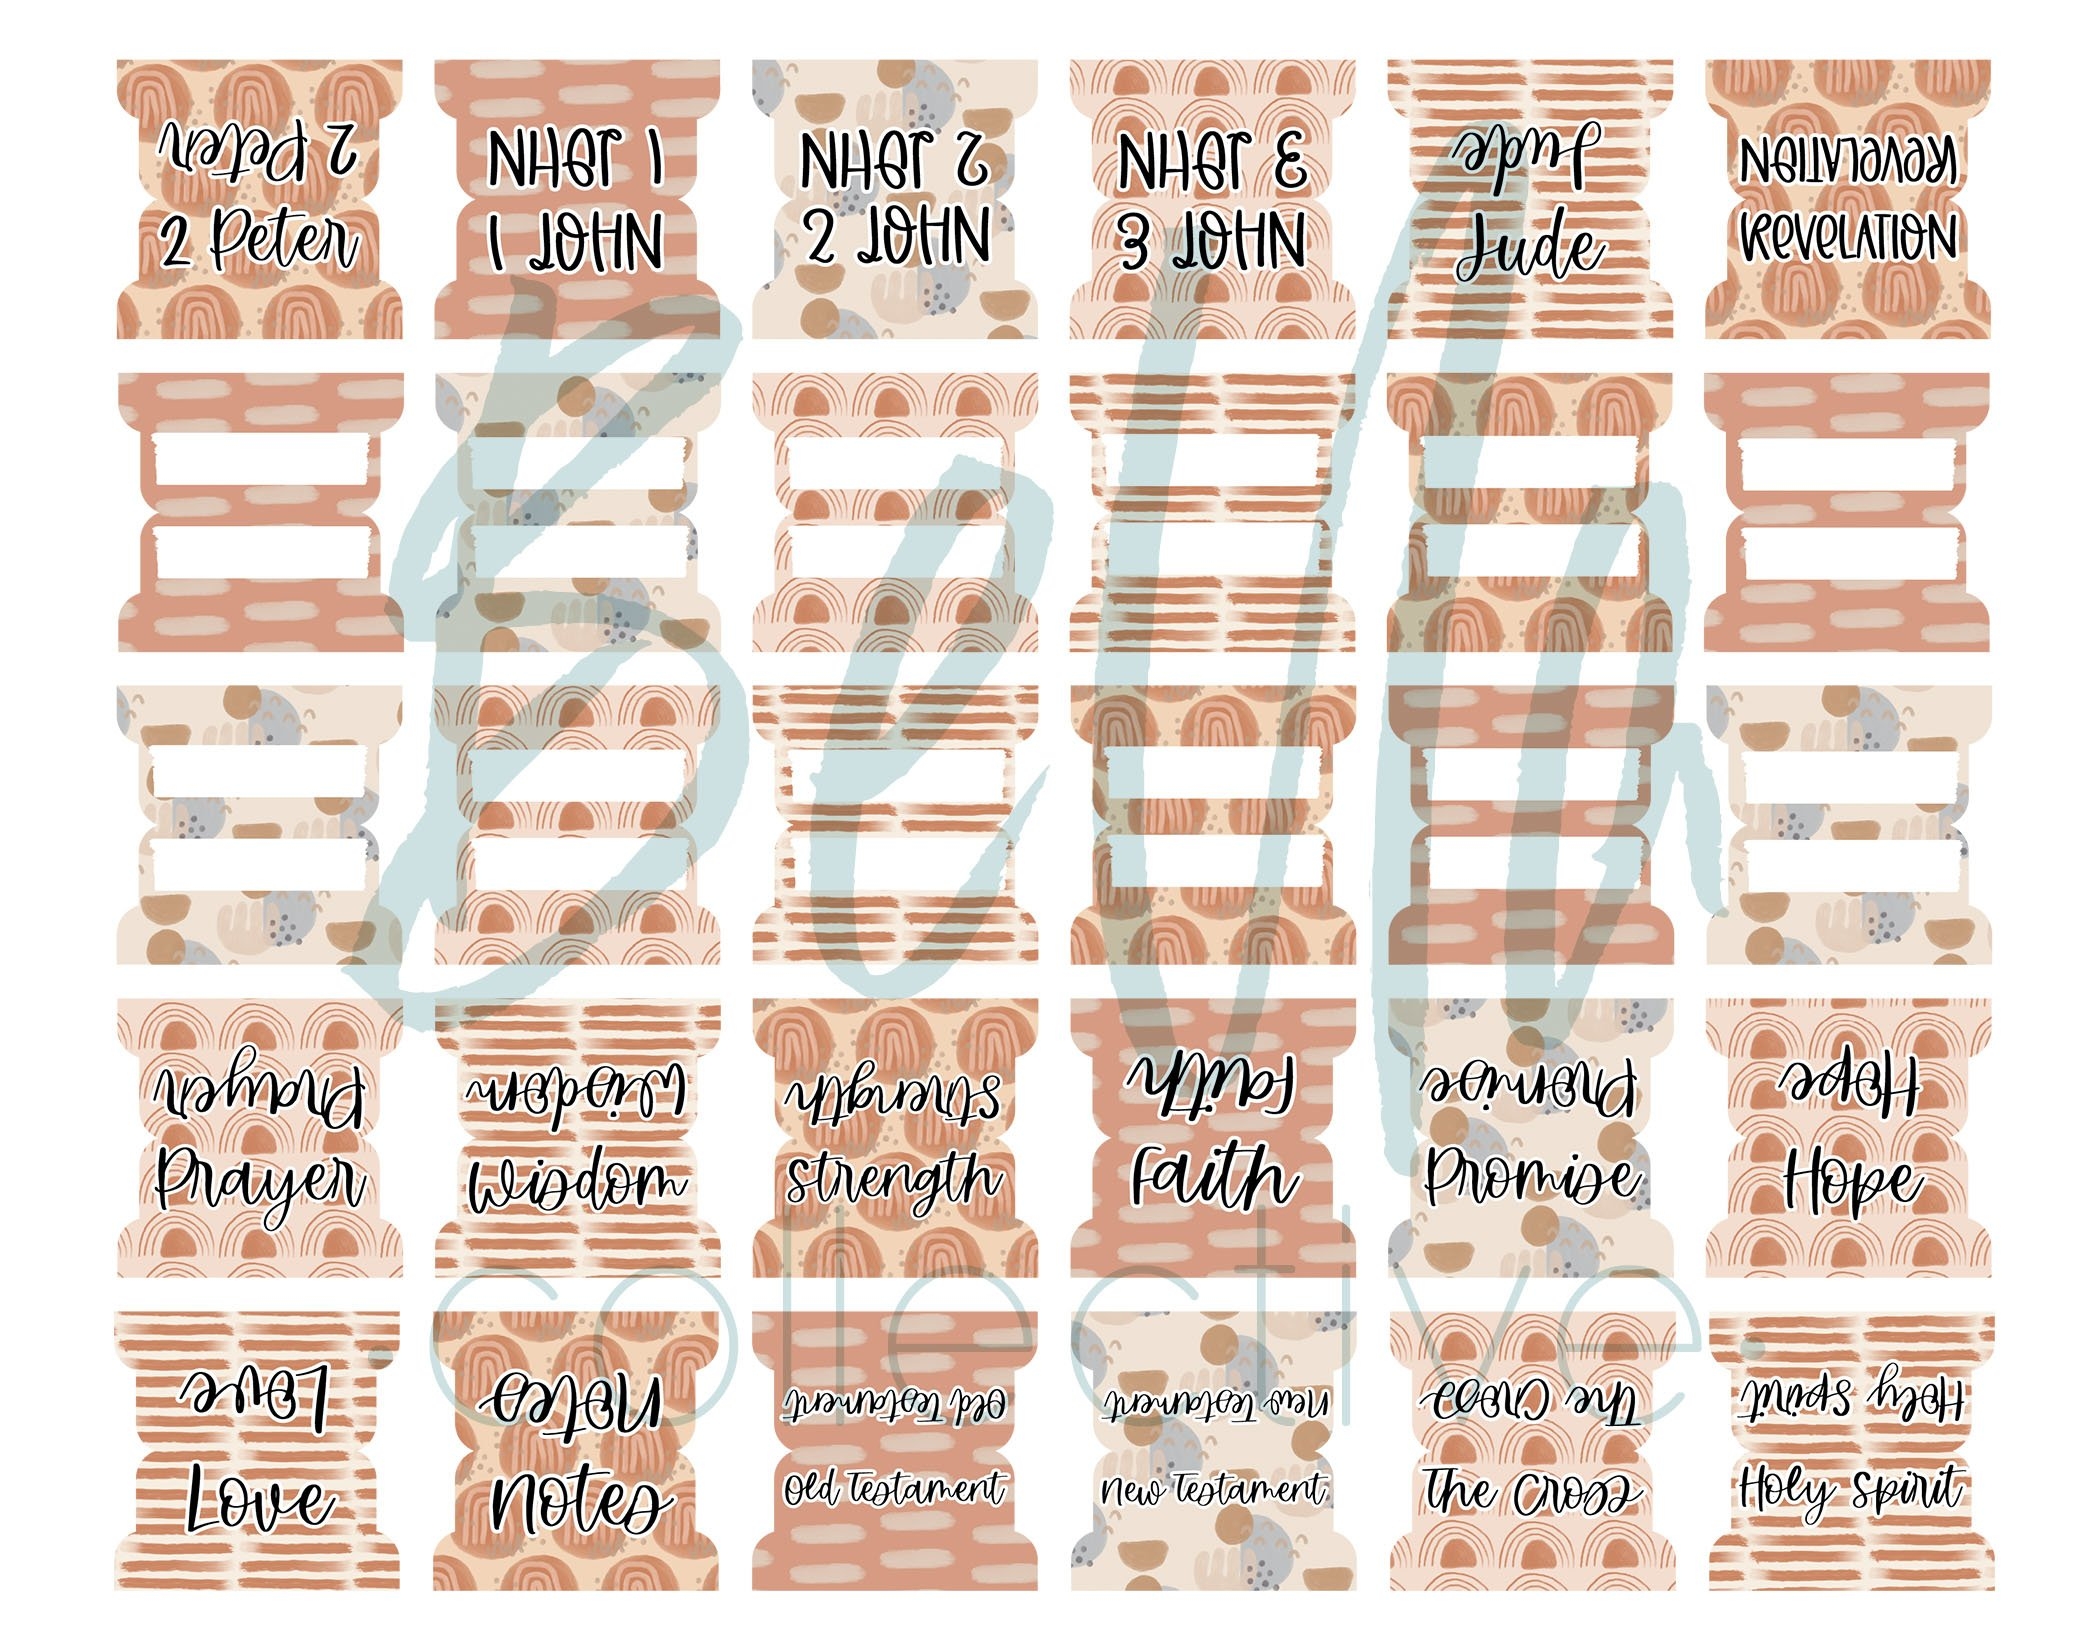 2 Peter
2 Peter
1 JOHN
1 JOHN
2 JOHN
2 JOHN
3 JOHN
3 JOHN
Jude
Jude
Revelation
Revelation
Prayer
Prayer
Wisdom
Wisdom
Strength
Strength
Faith
Faith
Promise
Promise
Hope
Hope
Love
Love
Notes
Notes
Old Testament
Old Testament
New Testament
New Testament
The Cross
The Cross
Holy Spirit
Holy Spirit
.collective.